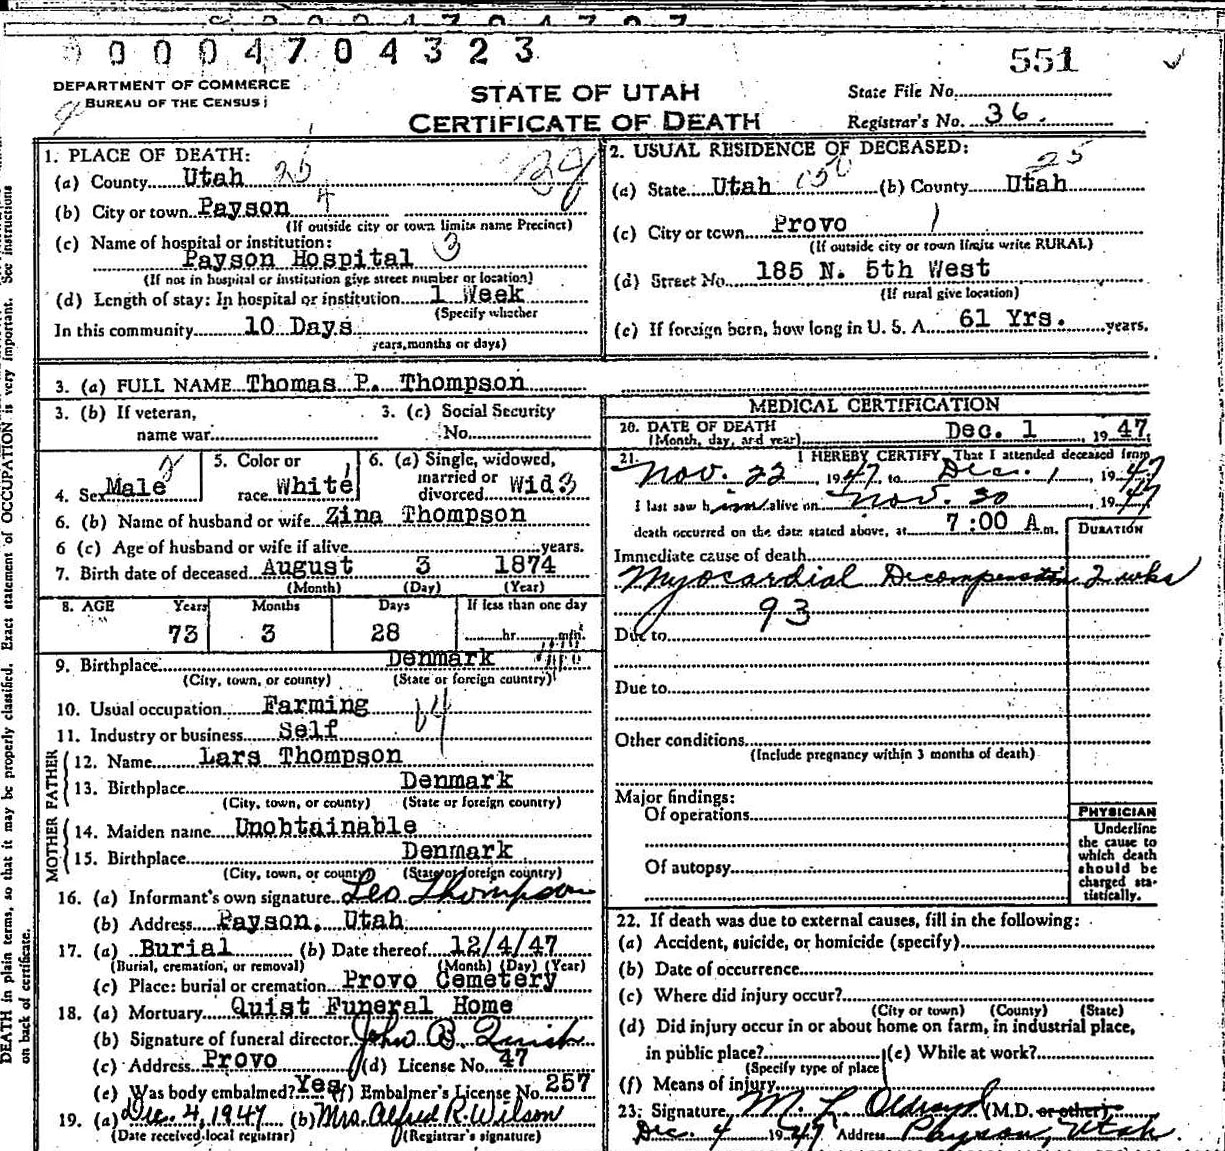 00004704323
551
DEPARTMENT OF COMMERCE
BUREAU OF THE CENSUS
STATE OF UTAH
CERTIFICATE OF DEATH
State File No.
Registrar's No. 36.
1. PLACE OF DEATH:
(a) County Utah 25
(b) City or town Payson 4
(If outside city or town limits name Precinct)
(c) Name of hospital or institution:
Payson Hospital 3
(If not in hospital or institution give street number or location)
(d) Length of stay: In hospital or institution 1 Week
(Specify whether
In this community 10 Days
years, months or days)
2. USUAL RESIDENCE OF DECEASED:
(a) State Utah 150 (b) County Utah 25
(c) City or town Provo 1
(If outside city or town limits write RURAL)
(d) Street No. 185 N. 5th West
(If rural give location)
(e) If foreign born, how long in U. S. A. 61 Yrs. years.
3. (a) FULL NAME Thomas P. Thompson
3. (b) If veteran,
name war
3. (c) Social Security
No.
4. Sex Male 2
5. Color or
race White 1
6. (a) Single, widowed,
married or
divorced Wid 3
6. (b) Name of husband or wife Zina Thompson
6 (c) Age of husband or wife if alive years.
7. Birth date of deceased August 3 1874
(Month) (Day) (Year)
8. AGE Years Months Days If less than one day
73 3 28 hr. min.
9. Birthplace Denmark
(City, town, or county) (State or foreign country)
10. Usual occupation Farming
11. Industry or business Self
FATHER
12. Name Lars Thompson
13. Birthplace Denmark
(City, town, or county) (State or foreign country)
MOTHER
14. Maiden name Unobtainable
15. Birthplace Denmark
(City, town, or county) (State or foreign country)
16. (a) Informant's own signature Leo Thompson
(b) Address Payson, Utah
17. (a) Burial (b) Date thereof 12/4/47
(Burial, cremation, or removal) (Month) (Day) (Year)
(c) Place: burial or cremation Provo Cemetery
18. (a) Mortuary Quist Funeral Home
(b) Signature of funeral director John B Quist
(c) Address Provo (d) License No. 47
(e) Was body embalmed? Yes (f) Embalmer's License No. 257
19. (a) Dec. 4, 1947 (b) Mrs. Alfred R. Wilson
(Date received local registrar) (Registrar's signature)
MEDICAL CERTIFICATION
20. DATE OF DEATH
(Month, day, and year) Dec. 1, 1947
21. I HEREBY CERTIFY, That I attended deceased from
Nov. 22, 1947, to Dec. 1, 1947
I last saw him alive on Nov. 30, 1947
death occurred on the date stated above, at 7:00 A m.
DURATION
Immediate cause of death
Myocardial Decompensation 2 wks
93
Due to
Due to
Other conditions
(Include pregnancy within 3 months of death)
Major findings:
Of operations
Of autopsy
PHYSICIAN
Underline
the cause to
which death
should be
charged sta-
tistically.
22. If death was due to external causes, fill in the following:
(a) Accident, suicide, or homicide (specify)
(b) Date of occurrence
(c) Where did injury occur?
(City or town) (County) (State)
(d) Did injury occur in or about home on farm, in industrial place,
in public place? (e) While at work?
(Specify type of place
(f) Means of injury
23. Signature M. L. Oldroyd (M.D. or other)
Dec. 4 1947 Address Payson, Utah.
DEATH in plain terms, so that it may be properly classified. Exact statement of OCCUPATION is very important. See instruction
on back of certificate.